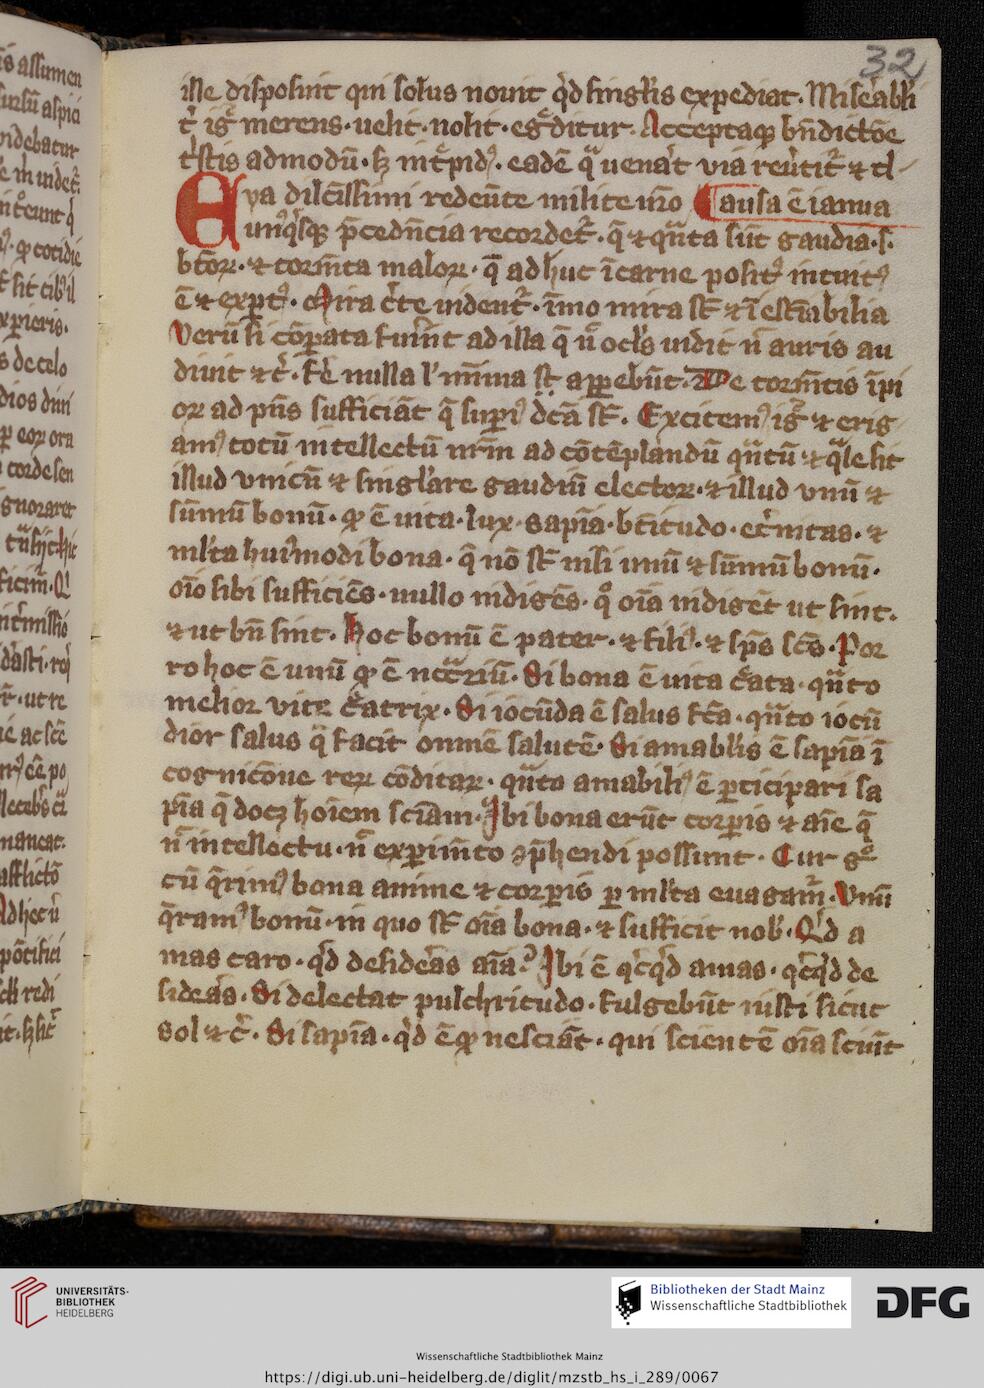 32
ille disposuit qui solus nouit q̇d singl̓is expediat. Miseabl̓i
t̓ ig̓ merens. uelit. nolit. eg̓ditur. Acceptaq; bn̄dictōe
t̓stis admodū. sꝫ int̓pidꝰ. eadē qͣ uenat̓ via reūtit᷑ ⁊ cl̓
Eya dilc̄issimi redeūte milite nr̄o Causa ē ianua
unꝰq̓sq; p̄cedn̄cia recordet᷑. q̄ ⁊ qn̄ta sūt gaudia. s.
bt̄oꝝ. ⁊ torm̄ta maloꝝ. q̄ adhuc ī carne positꝰ intuitꝰ
ē ⁊ exptꝰ. Mira c̓te uident᷑. īmo mira st̄ ⁊ īestīabilia
Verū si cōꝑata fuint̓ ad illa q̄ n̄ ocl̓s uidit n̄ auris au
diuit ⁊ c̓. fe̓ nulla l̓ mīma st̄ apꝑebūt. De torm̄tis īpi
oꝝ ad pn̄s sufficiāt q̄ suꝑiꝰ dc̄a st̄. Excitemꝰ ig̓ ⁊ erig
amꝰ totū intellectū nr̄m ad cōtēplandū qn̄tū ⁊ qͣle sit
illud vnicū ⁊ singl̓are gaudiū electoꝝ. ⁊ illud vnū ⁊
sūmū bonū. ꝙ ē uita. lux. sapīa. bt̄itudo. et̓nitas. ⁊
ml̓ta hui̓modi bona. q̄ nō st̄ nisi unū ⁊ sūmū bonū.
oīo sibi sufficiēs. nullo indigēs. qͦ oīa indigēt ut sint.
⁊ ut bn̄ sint. Hoc bonū ē pater. ⁊ filiꝰ. ⁊ sp̄s sc̄s. Por
ro hoc ē unū ꝙ ē nc̄cͣriū. Si bona ē uita c̓ata. qn̄to
melior vite c̓atrix. Si iocūda ē salus fc̄a. qn̄to iocū
dior salus q̄ facit omnē salutē. Si amabl̓is ē sapīa ī
cognicōne reꝝ cōditaꝝ. qn̄to amabiliꝰ ē ꝑticipari sa
pīa q̄ docꝫ hoīem sc̄iam. Ibi bona erūt corꝑis ⁊ aīe q̄
n̄ intellectu. n̄ exꝑim̄to ꝯp̄hendi possunt. Cur g̓
cū q̄rimꝰ bona anime ⁊ corꝑis ꝑ ml̓ta euagam᷑. Vnū
q̄ramꝰ bonū. in quo st̄ oīa bona. ⁊ sufficit nob̓. Qͥd a
mas caro. qͥd desideas̓ aīa? Ibi ē qͥcqͥd amas. qͥcqͥd de
sideas̓. Si delectat pulchritudo. fulgebūt iusti sicut
sol ⁊ c̓. Si sapīa. qͥd ē ꝙ nesciāt. qui scientē oīa sciūt
UNIVERSITÄTS-
BIBLIOTHEK
HEIDELBERG
Bibliotheken der Stadt Mainz
Wissenschaftliche Stadtbibliothek
DFG
Wissenschaftliche Stadtbibliothek Mainz
https://digi.ub.uni-heidelberg.de/diglit/mzstb_hs_i_289/0067